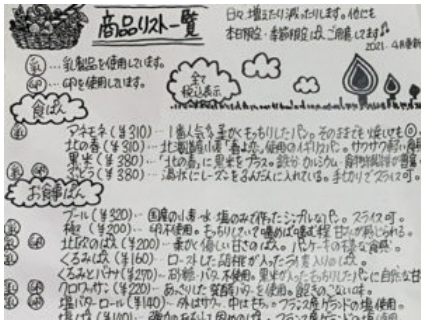 商品リスト一覧
日々、増えたり減ったりします。他にも
本日限定・季節限定ぱん ご用意してます
2021.4月更新
乳…乳製品を使用しています。
卵…卵を使用しています。
全て
税込表示
食ぱん
乳 アネモネ(¥310)…1番人気な柔かくもっちりしたパン。そのままでも焼いても◎
北の春(¥310)…北海道産小麦「春よ恋」使用のイギリスパン。サクサク軽い
黒米(¥380)…「北の春」に黒米をプラス。鉄分 カルシウム
乳 卵 ぶどう(¥380)…湯状にレーズンをふんだんに入れている。手切りでスライス可。
お食事ぱん
プール(¥320)…国産の小麦・水・塩のみで作ったシンプルなパン。スライス可。
乳 卵 極(¥200)…卵不使用。もっちりしていて噛めば噛む程 甘みが感じられる。
乳 卵 北欧のぱん(¥200)…柔かく優しい甘さのぱん。パンケーキの様な食感。
乳 くるみぱん(¥160)…ローストした胡桃が入ったライ麦入りのぱん。
くるみとバナナ(¥270)…砂糖・バター不使用。黒米が入ったもっちりしたパンに自然な甘
乳 卵 クロワッサン(¥220)…あっさりした発酵バターを使用。飽きのこない味。
乳 卵 塩バターロール(¥140)…外はサクッ、中はもちっ。フランス産ゲランドの塩使用。
塩ぱん(¥100)